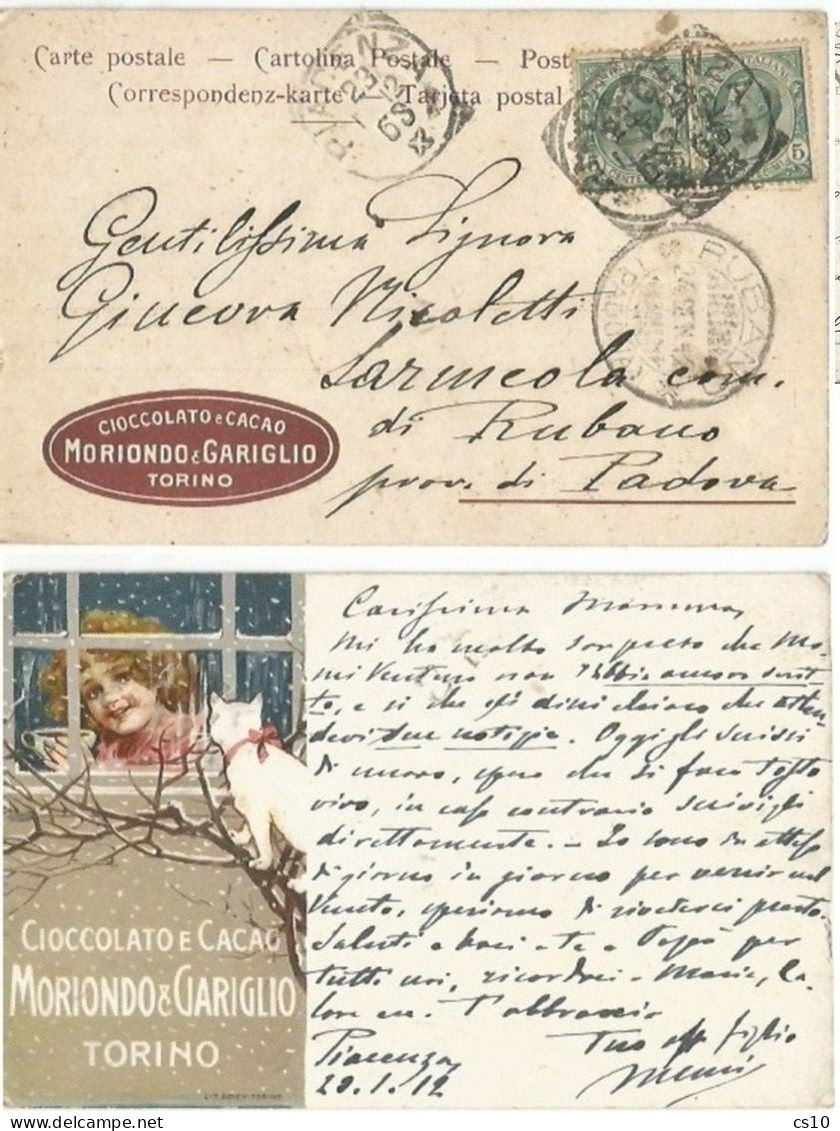 Carte postale — Cartolina Postale — Post
Correspondenz-karte — Tarjeta postal
PIACENZA
5
RUBANO
Gentilissima Signora
Ginevra Nicoletti
Sarmeola com.
di Rubano
prov. di Padova
CIOCCOLATO e CACAO
MORIONDO & GARIGLIO
TORINO
Carissima Mamma,
Mi ha molto sorpreso che Mo-
mi Venturo non abbia ancora scrit-
to, e sì che gli dichiaro che atten-
devi sue notizie. Oggi gli scrissi
di nuovo, spero che si farà tosto
vivo, in caso contrario scrivigli
direttamente. – Io sono in attesa
di giorno in giorno per venir nel
Veneto, speriamo di rivederci presto.
Saluti e baci a te e Papà per
tutti voi, ricordi a Maria,
T'abbraccio
Tuo aff figlio
Piacenza,
20.1.12
CIOCCOLATO E CACAO
MORIONDO & GARIGLIO
TORINO
LIT. DOYEN-TORINO
cs10